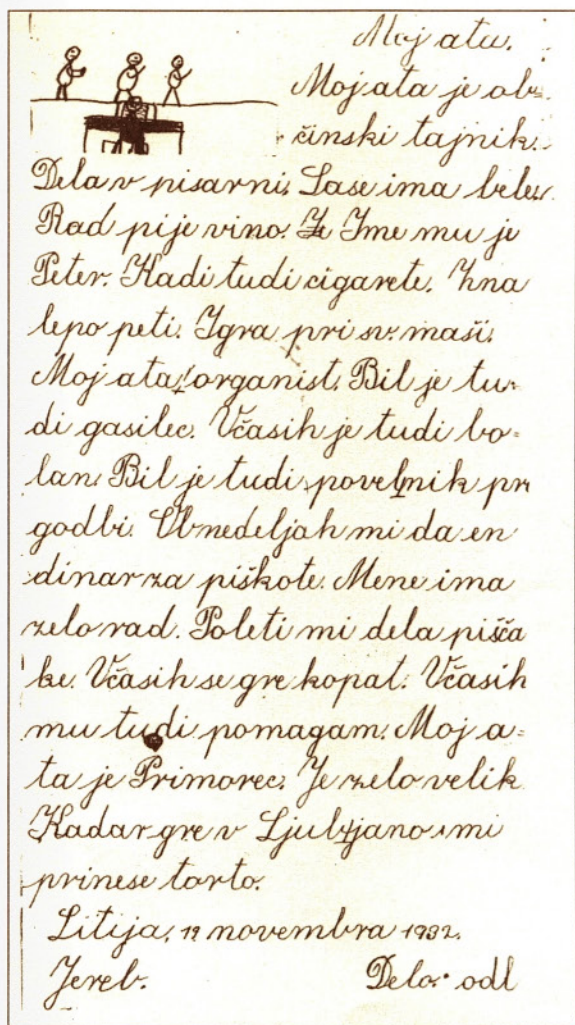 Moj ata.
Moj ata je ob=
činski tajnik.
Dela v pisarni. Lase ima bele.
Rad pije vino. Je Ime mu je
Peter. Kadi tudi cigarete. Zna
lepo peti. Igra pri sv. maši.
Moj ata organist. Bil je tu-
di gasilec. Včasih je tudi bo=
lan. Bil je tudi povelnik pri
godbi. Ob nedeljah mi da en
dinar za piškote. Mene ima
zelo rad. Poleti mi dela pišča
ke. Včasih se gre kopat. Včasih
mu tudi pomagam. Moj a=
ta je Primorec. Je zelo velik.
Kadar gre v Ljubljano mi
prinese torto.
Litija, novembra 1932.
Jereb. Delo: odl